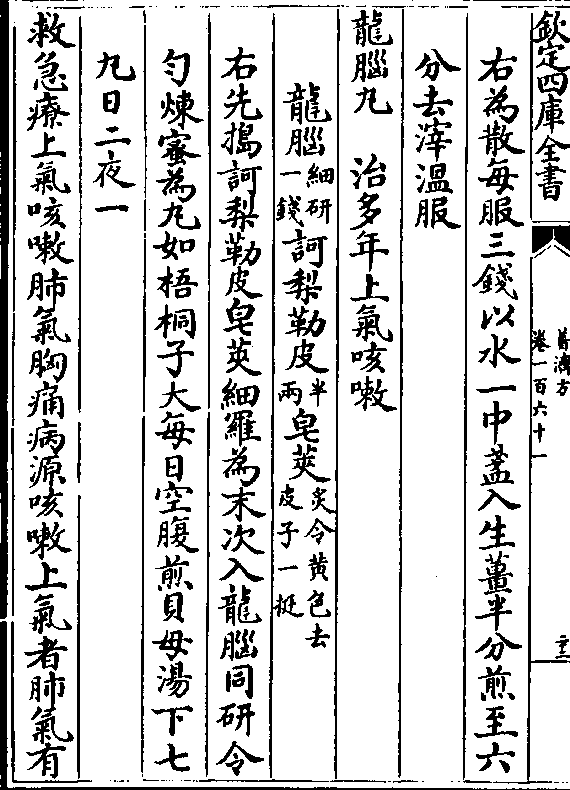 欽定四庫全書
普濟方
卷一百六十一
二十三
右為散每服三錢以水一中盞入生薑半分煎至六
分去滓溫服
龍腦丸 治多年上氣咳嗽
龍腦細研一錢訶梨勒皮半兩皂莢炙令黃色去皮子一挺
右先搗訶梨勒皮皂莢細羅為末次入龍腦同研令
勻煉蜜為丸如梧桐子大每日空腹煎貝母湯下七
九日二夜一
救急療上氣咳嗽肺氣胸痛病源咳嗽上氣者肺氣有